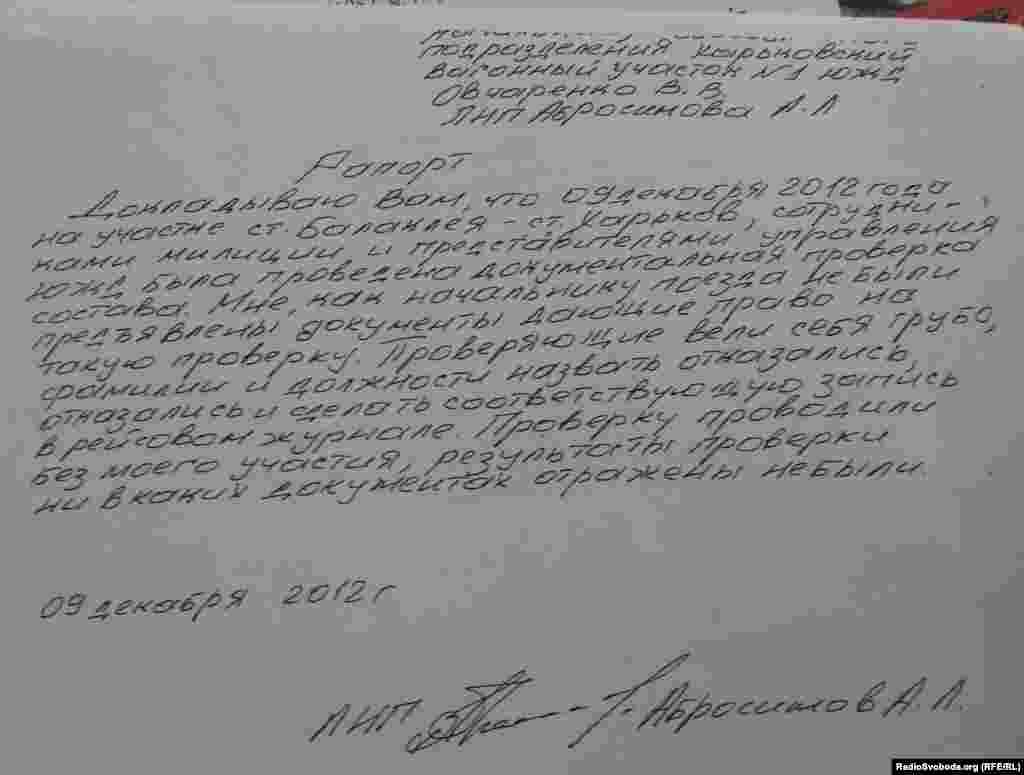 подразделения Харьковский
вагонный участок №1 ЮЖД
Овчаренко В. В.
ЛНП Абросимова А. Л
Рапорт
Докладываю Вам, что 09 декабря 2012 года
на участке ст. Балаклея - ст. Харьков, сотрудни-
ками милиции и представителями управления
ЮЖД была проведена документальная проверка
состава. Мне, как начальнику поезда не были
предъявлены документы дающие право на
такую проверку. Проверяющие вели себя грубо,
фамилии и должности назвать отказались,
отказались и сделать соответствующую запись
в рейсовом журнале. Проверку проводили
без моего участия, результаты проверки
ни в каких документах отражены небыли.
09 декабря 2012 г
ЛНП Абросимов А. Л.
RadioSvoboda.org (RFE/RL)